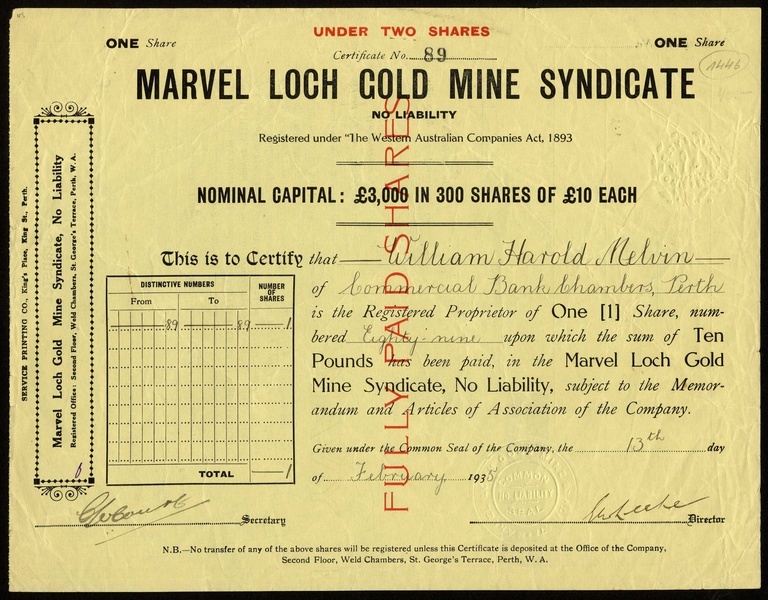 UNDER TWO SHARES
ONE Share
ONE Share
Certificate No. 89
1446
MARVEL LOCH GOLD MINE SYNDICATE
NO LIABILITY
Registered under "The Western Australian Companies Act, 1893
NOMINAL CAPITAL: £3,000 IN 300 SHARES OF £10 EACH
This is to Certify that William Harold Melvin
of Commercial Bank Chambers, Perth
is the Registered Proprietor of One [1] Share, num-
bered Eighty-nine upon which the sum of Ten
Pounds has been paid, in the Marvel Loch Gold
Mine Syndicate, No Liability, subject to the Memor-
andum and Articles of Association of the Company.
Given under the Common Seal of the Company, the 13th day
of February 1935
FULLY PAID SHARES
DISTINCTIVE NUMBERS
NUMBER OF SHARES
From To
89 89 1
TOTAL 1
Secretary
Director
N.B.—No transfer of any of the above shares will be registered unless this Certificate is deposited at the Office of the Company,
Second Floor, Weld Chambers, St. George's Terrace, Perth, W. A.
SERVICE PRINTING CO., King's Place, King St., Perth.
Marvel Loch Gold Mine Syndicate, No Liability
Registered Office: Second Floor, Weld Chambers, St. George's Terrace, Perth, W. A.
COMMON
NO LIABILITY